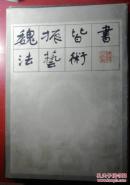 魏振皆書
法藝術